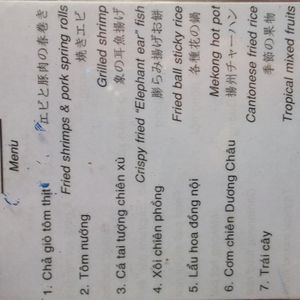 Menu
1. Chả giò tôm thịt エビと豚肉の春巻き
Fried shrimps & pork spring rolls
2. Tôm nướng 焼きエビ
Grilled shrimp
3. Cá tai tượng chiên xù 象の耳魚揚げ
Crispy fried "Elephant ear" fish
4. Xôi chiên phồng 膨らみ揚げお餅
Fried ball sticky rice
5. Lẩu hoa đồng nội 各種花の鍋
Mekong hot pot
6. Cơm chiên Dương Châu 揚州チャーハン
Cantonese fried rice
7. Trái cây 季節の果物
Tropical mixed fruits